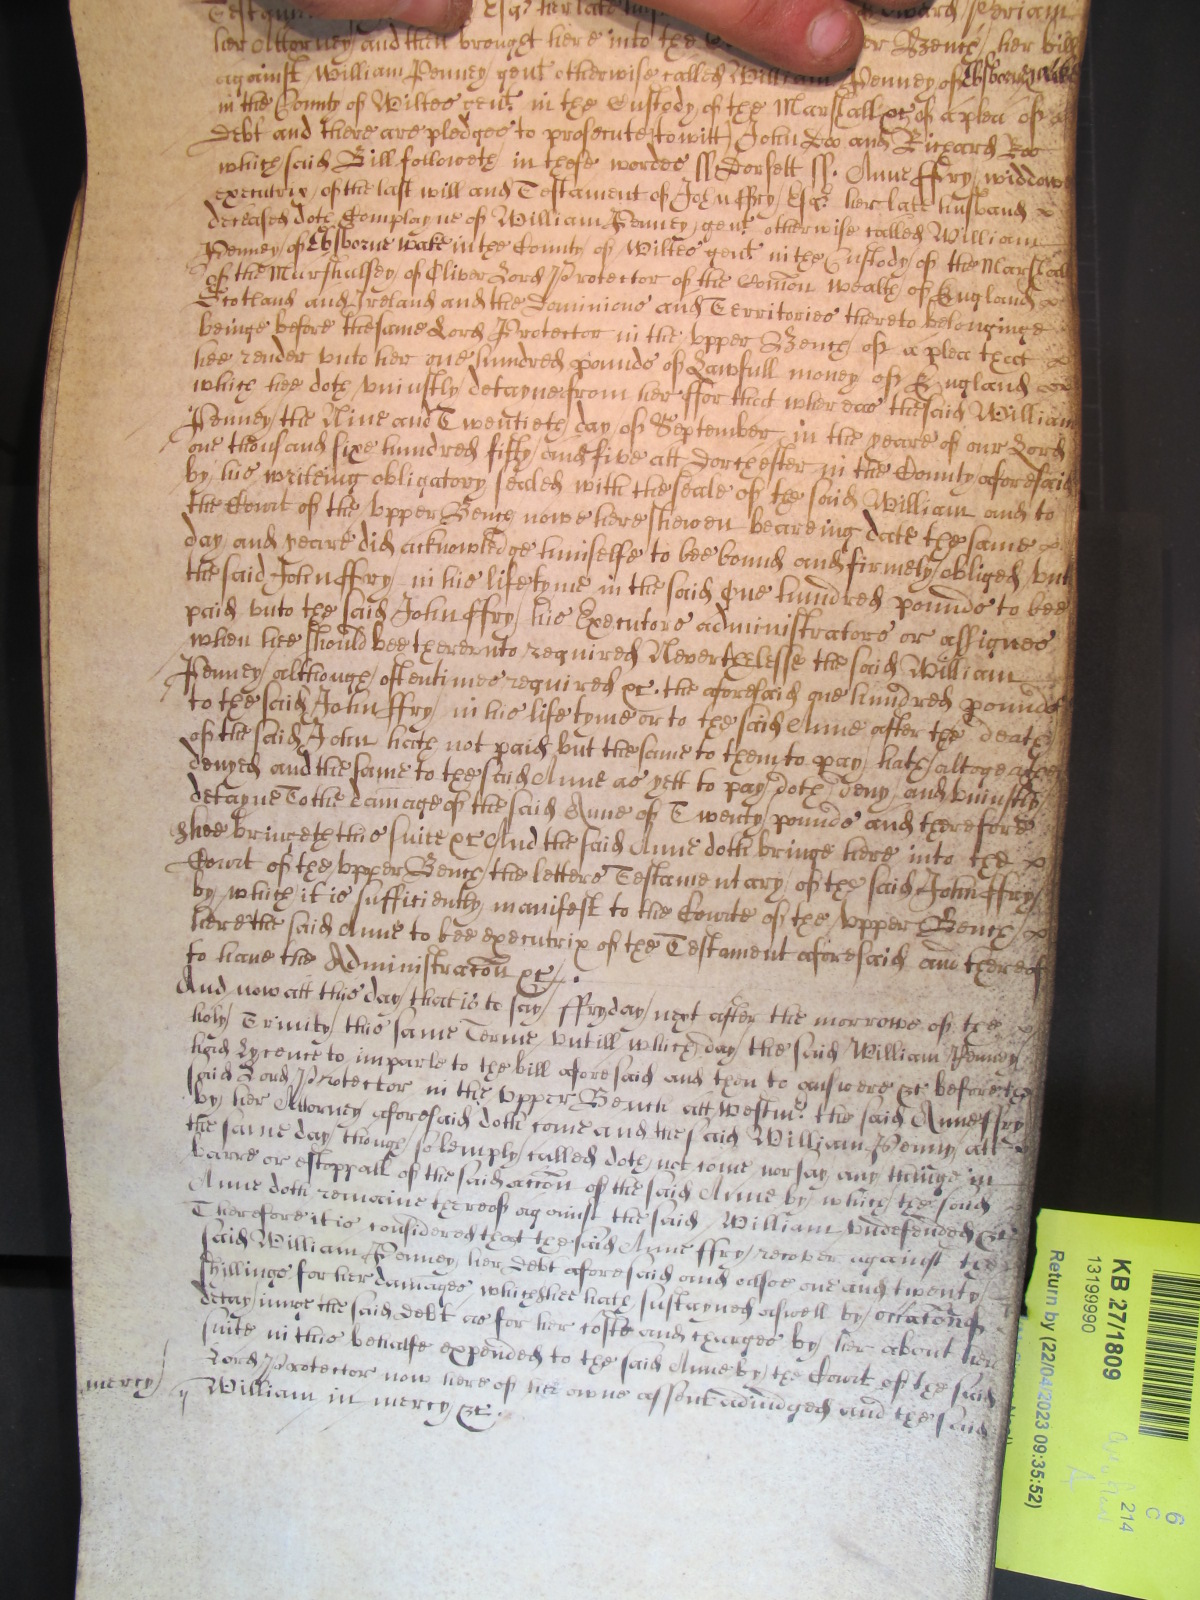 Testam Esqr her late husb Edward Periam
her Attorney and then brought here into the er Bench her bill
against William Penney gent otherwise called William Penney of Ebsborne wake
in the County of Wiltes gent in the Custody of the Marshall &c of a plea of
Debt and there are pledges to prosecute towitt John Doo and Richard Roo
which said Bill followeth in these wordes ss Dorsett ss. Anne ffry widdow
executrix of the last will and Testament of John ffry Esqr her late husband
deceased doth Complayne of William Penney gent otherwise called William
Penney of Ebsborne wake in the County of Wiltes gent in the Custody of the Marshall
of the Marshallsey of Oliver Lord Protector of the Comon wealth of England
Scotland and Ireland and the Dominions and Territories thereto belonginge
beinge before the same Lord Protector in the vpper Bench of a plea that
hee render vnto her one hundred pounds of Lawfull money of England
which hee doth vniustly detayne from her ffor that whereas the said William
Penney the Nine and Twentieth day of September in the yeare of our Lord
one thousand sixe hundred fifty and five att Dorchester in the County aforesaid
by his writeing obligatory sealed with the seale of the said William and to
the Court of the vpper Bench nowe here shewen beareing date the same
day and yeare did acknowledge himselfe to bee bound and firmely obliged vnt
the said John ffry in his life tyme in the said One hundred pounds to bee
paid vnto the said John ffry his Executors administrators or assignes
when hee should bee therevnto required Neverthelesse the said William
Penney although oftentimes required &c. the aforesaid one hundred pounds
to the said John ffry in his life tyme or to the said Anne after the death
of the said John hath not paid but the same to them to pay hath altogeather
denyed and the same to the said Anne as yett to pay doth deny and vniustly
detayne To the damage of the said Anne of Twenty pounds and therefore
shee bringeth this suite &c And the said Anne doth bringe here into the
Court of the vpper Bench the letters Testamentary of the said John ffry
by which it is sufficiently manifest to the Courte of the vpper Bench
here the said Anne to bee executrix of the Testament aforesaid and thereof
to haue the Administracon &c.
And now att this day that is to say ffryday next after the morrowe of the
holy Trinity this same Terme vntill which day the said William Penney
had Lycence to imparle to the bill aforesaid and then to answere &c before the
said Lord Protector in the vpper Bench att Westmr. the said Anne ffry
by her Attorney aforesaid doth come and the said William Penny att
the same day though solemply called doth not come nor say any thinge in
barre or estoppall of the said accon of the said Anne by which the said
Anne doth remaine thereof against the said William vndefended &c
Therefore it is considered that the said Anne ffry recover against the
said William Penney her Debt aforesaid and alsoe one and twenty
shillings for her damages which shee hath sustayned aswell by occacon of
detayninge the said Debt as for her costs and charges by her about her
suite in this behalfe expended to the said Anne by the Court of the said
Lord Protector now here of her owne assent adiudged and the said
mercy William in mercy &c.
KB 27/1809
13199990
Return by (22/04/2023 09:35:52)
6
C
214